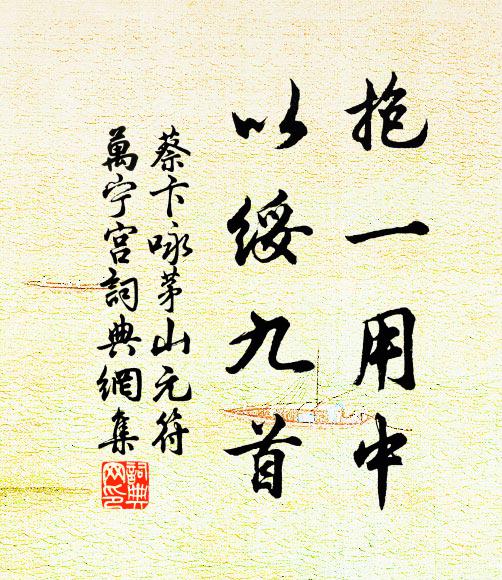 抱一用中
以綏九首
蔡卞咏茅山元符
萬宁宮詞典網集
詞典
网印